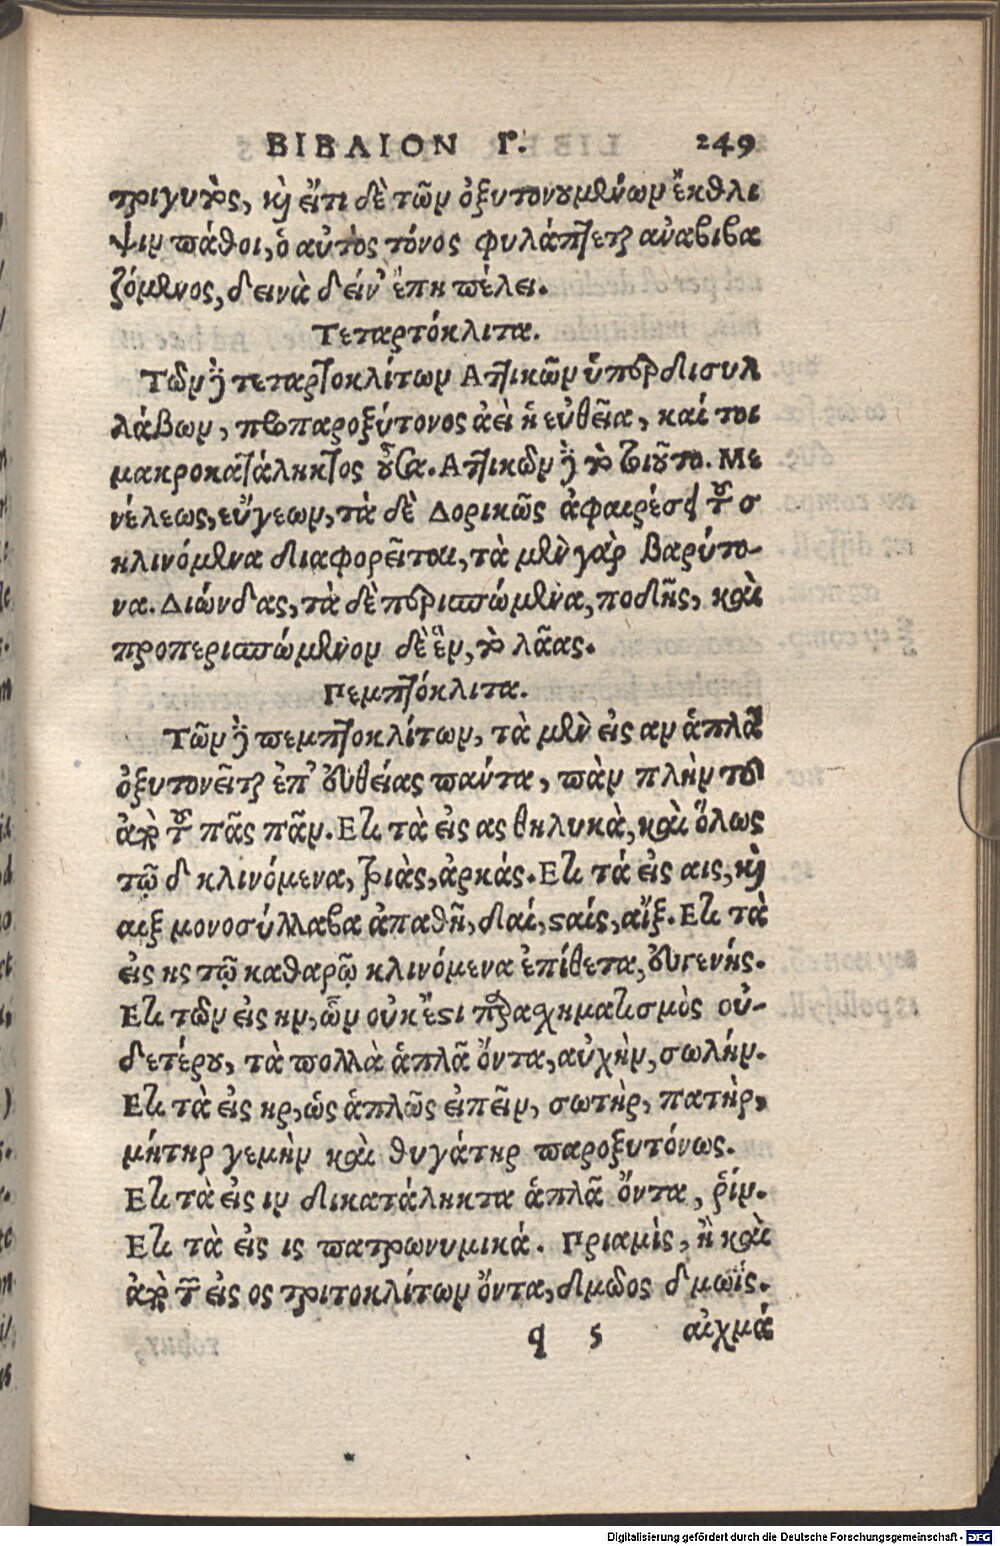 ΒΙΒΛΙΟΝ Γ. 249
τριγυρος, καὶ εἴτι δὲ τῶν ὀξυτονουμένων ἔκθλι
ψιν πάθοι, ὁ αὐτὸς τόνος φυλάττεται ἀναβιβα
ζόμενος, δεινὰ δείν' ἔπη πέλει.
Τεταρτόκλιτα.
Τῶν δὲ τεταρτοκλίτων Ἀττικῶν ὑπερδισυλ
λάβων, προπαροξύτονος ἀεὶ ἡ εὐθεῖα, καί τοι
μακροκατάληκτος οὖσα. Ἀττικῶν δὲ τὸ τοιοῦτο. Με
νέλεως, εὔγεων, τὰ δὲ Δορικῶς ἀφαιρέσει τοῦ σ
κλινόμενα διαφορεῖται, τὰ μὲν γὰρ βαρύτο-
να. Διώνδας, τὰ δὲ περισπώμενα, ποδῆς, καὶ
προπερισπώμενον δὲ ἓν, τὸ λᾶας.
Πεμπτόκλιτα.
Τῶν δὲ πεμπτοκλίτων, τὰ μὲν εἰς αν ἁπλᾶ
ὀξυτονεῖται ἐπ' εὐθείας παντα, πὰν πλὴν τοῦ
παρὰ τοῦ πᾶς πᾶν. Ετι τὰ εἰς ας θηλυκὰ, καὶ ὅλως
τῷ δ κλινόμενα, τριὰς, ἀρκάς. Ετι τά εἰς αις, καὶ
αιξ μονοσύλλαβα ἀπαθῆ, δαί, σταίς, αἴξ. Ετι τὰ
εἰς ης τῷ καθαρῷ κλινόμενα ἐπίθετα, εὐγενής.
Ετι τῶν εἰς ην, ὧν οὐκ ἔστι παρασχηματισμὸς οὐ-
δετέρου, τὰ πολλὰ ἁπλᾶ ὄντα, αὐχὴν, σωλήν.
Ετι τὰ εἰς ηρ, ὡς ἁπλῶς εἰπεῖν, σωτὴρ, πατὴρ,
μήτηρ γεμὴν καὶ θυγάτηρ παροξυτόνως.
Ετι τὰ εἰς ιν δικατάληκτα ἁπλᾶ ὄντα, ῥίν.
Ετι τὰ εἰς ις πατρωνυμικά. Πριαμὶς, ἢ καὶ
παρὰ τῶν εἰς ος τριτοκλίτων ὄντα, διμωδος δμωΐς.
q 5 αἰχμά
Digitalisierung gefördert durch die Deutsche Forschungsgemeinschaft - DFG